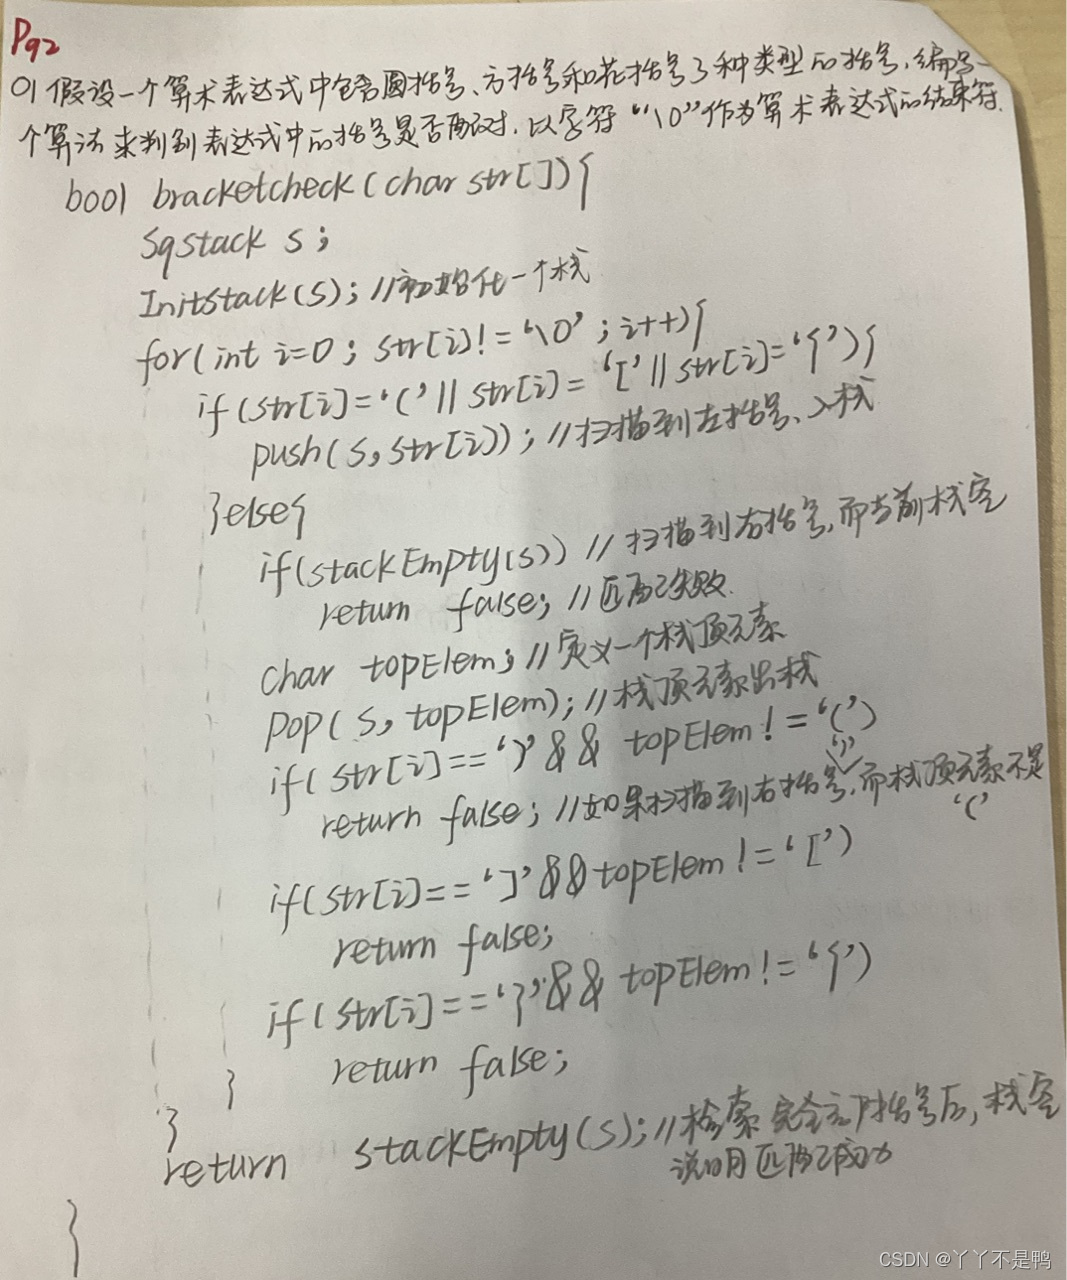 P92
01 假设一个算术表达式中包含圆括号、方括号和花括号3种类型的括号,编写一
个算法来判别表达式中的括号是否配对,以字符“\0”作为算术表达式的结束符.
bool bracketcheck(char str[]){
Sqstack s;
InitStack(S); //初始化一个栈
for(int i=0; str[i]!='\0'; i++){
if(str[i]='(' || str[i]='[' || str[i]='{'){
push(s,str[i]); //扫描到左括号、入栈
}else{
if(stackEmpty(s)) //扫描到右括号,而当前栈空
return false; //匹配失败.
char topElem; //定义一个栈顶元素
pop(s,topElem); //栈顶元素出栈
if(str[i]==')' && topElem!='(')
return false; //如果扫描到右括号')',而栈顶元素不是'('
if(str[i]==']' && topElem!='[')
return false;
if(str[i]=='}' && topElem!='{')
return false;
}
}
return stackEmpty(s); //检索完全部括号后,栈空
说明匹配成功
}
CSDN @丫丫不是鸭